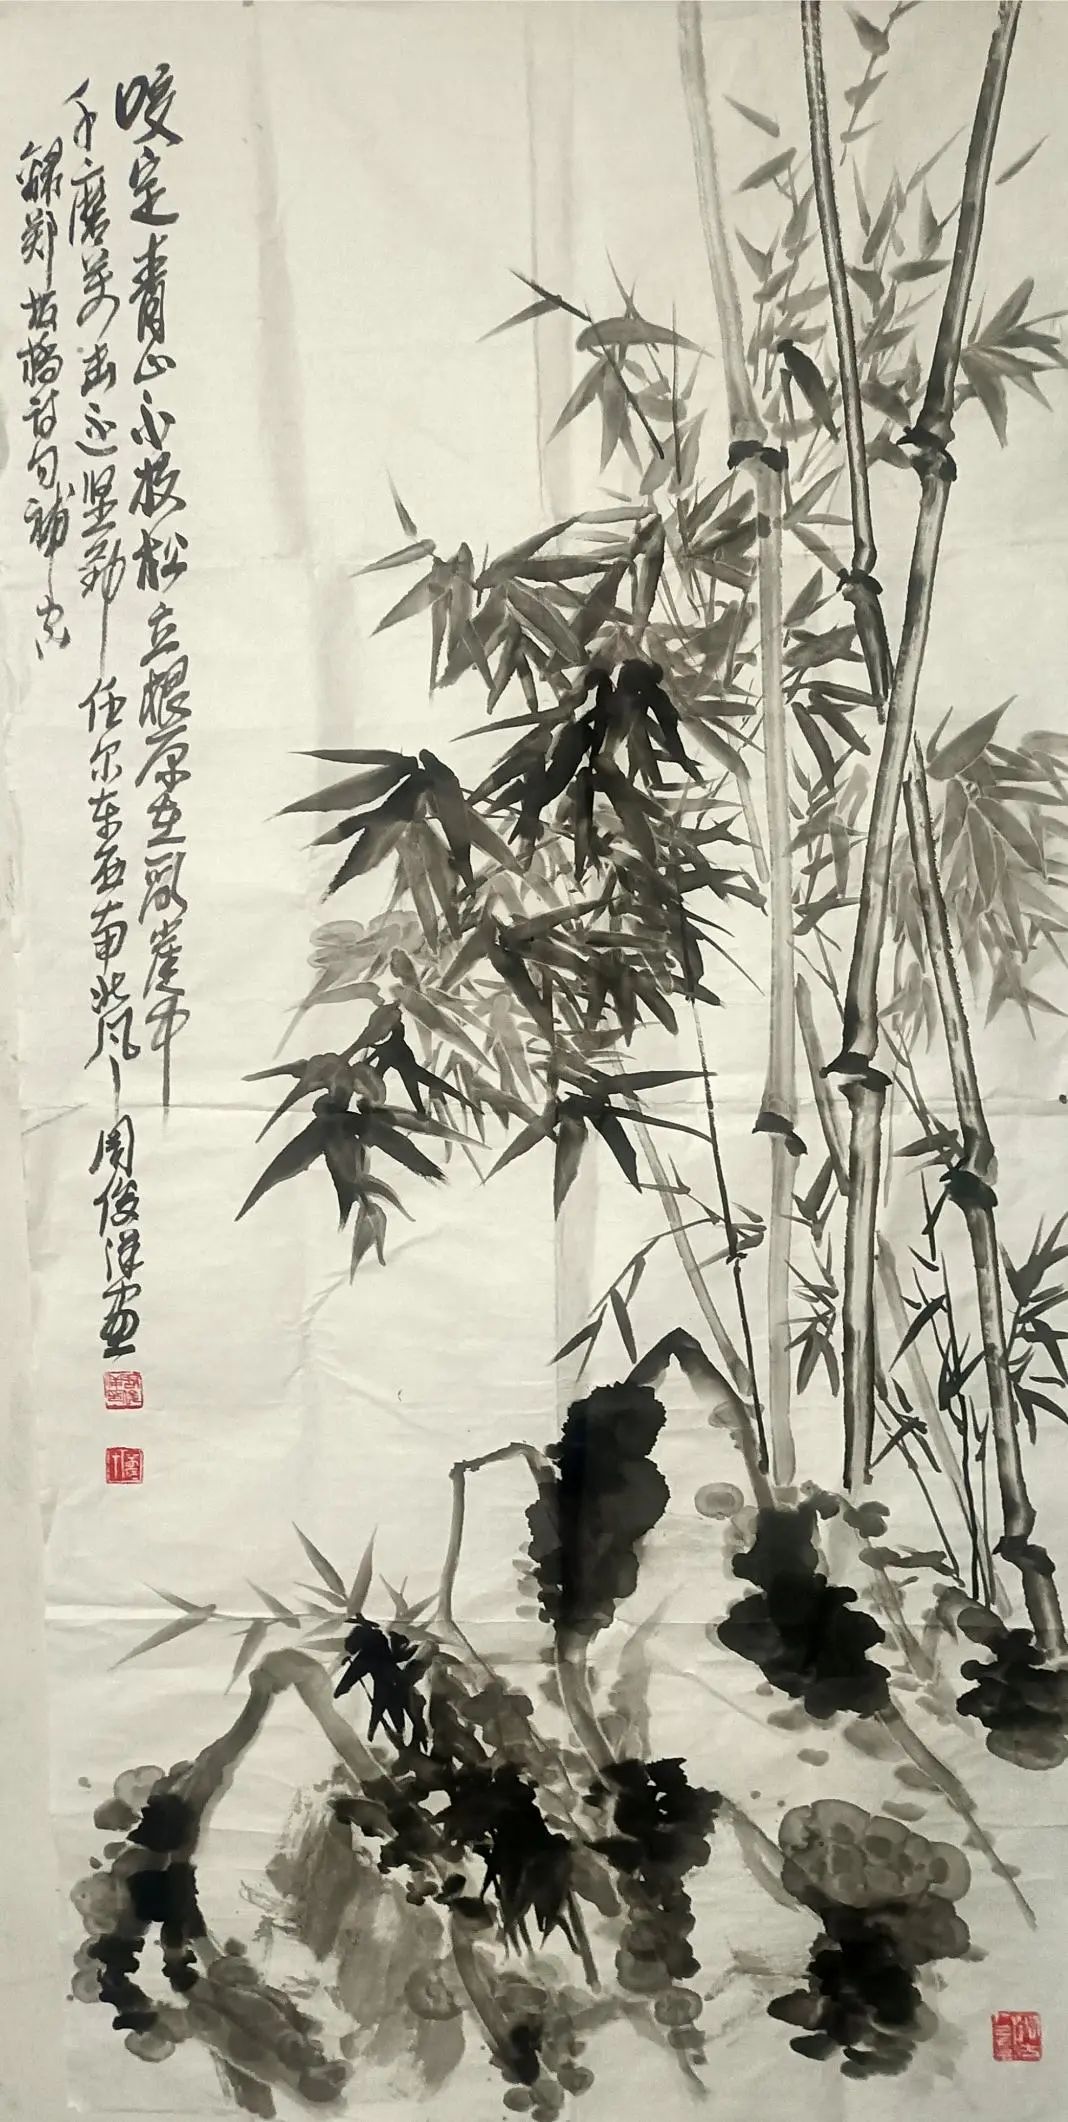 咬定青山不放松立根原在破崖中
千磨万击还坚劲任尔东西南北风周俊洋画
录郑板桥诗句补空